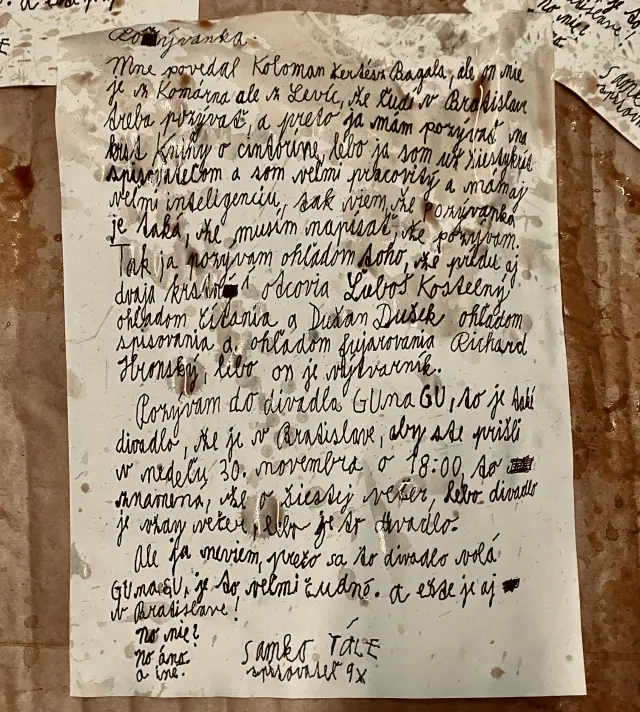 Pozývanka.
Mne povedal Koloman Kertész Bagala, ale on nie
je z Komárna ale z Levíc, že ľudí v Bratislave
treba pozývať, a preto ja mám pozývať na
krst Knihy o cintoríne, lebo ja som už
spisovateľom a som veľmi pracovitý a mám aj
veľmi inteligenciu, tak viem, že pozývanka
je taká, že musím napísať, že pozývam.
Tak ja pozývam ohľadom toho, že prídu aj
dvaja krstní otcovia Ľuboš Kostelný
ohľadom čítania a Dušan Dušek ohľadom
spisovania a ohľadom fujarovania Richard
Hronský, lebo on je výtvarník.
Pozývam do divadla GUnaGU, to je také
divadlo, že je v Bratislave, aby ste prišli
v nedeľu 30. novembra o 18:00, to
znamená, že o šiestej večer, lebo divadlo
je vždy večer, lebo je to divadlo.
Ale ja neviem, prečo sa to divadlo volá
GUnaGU, je to veľmi čudné. a ešte je aj
v Bratislave!
No nie?
No áno.
a iné.
Samko TÁLE
spisovateľ 9x
No nie?